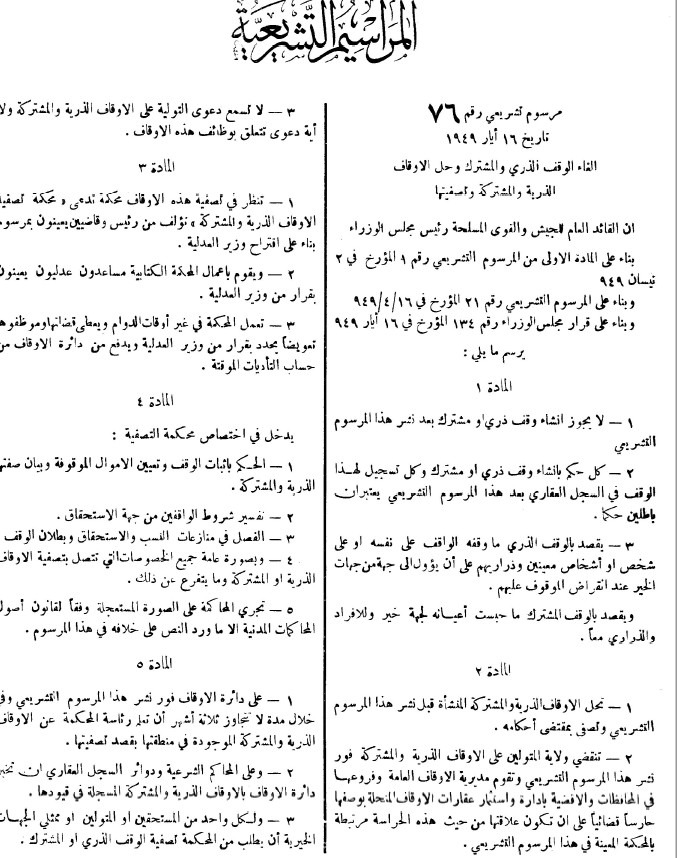 المراسيم التشريعية
مرسوم تشريعي رقم ٧٦
تاريخ ١٦ أيار ١٩٤٩
الغاء الوقف الذري والمشترك وحل الاوقاف
الذرية والمشتركة وتصفيتها
ان القائد العام للجيش والقوى المسلحة رئيس مجلس الوزراء
بناء على المادة الاولى من المرسوم التشريعي رقم ١ المؤرخ في ٢
نيسان ٩٤٩
وبناء على المرسوم التشريعي رقم ٢١ المؤرخ في ٩٤٩/٤/١٦
وبناء على قرار مجلس الوزراء رقم ١٣٤ المؤرخ في ١٦ أيار ٩٤٩
يرسم ما يلي :
المادة ١
١ — لا يجوز انشاء وقف ذري او مشترك بعد نشر هذا المرسوم
التشريعي
٢ — كل حكم بانشاء وقف ذري او مشترك وكل تسجيل لهذا
الوقف في السجل العقاري بعد هذا المرسوم التشريعي يعتبران
باطلين حكما .
٣ — يقصد بالوقف الذري ما وقفه الواقف على نفسه او على
شخص او أشخاص معينين وذراريهم على أن يؤول الى جهة من جهات
الخير عند انقراض الموقوف عليهم .
ويقصد بالوقف المشترك ما حبست أعيانه لجهة خير وللافراد
والذراري معاً .
المادة ٢
١ — تحل الاوقاف الذرية والمشتركة المنشأة قبل نشر هذا المرسوم
التشريعي وتصفى بمقتضى أحكامه .
٢ — تنقضي ولاية المتولين على الاوقاف الذرية والمشتركة فور
نشر هذا المرسوم التشريعي وتقوم مديرية الاوقاف العامة وفروعها
في المحافظات والاقضية بادارة واستثمار عقارات الاوقاف المنحلة بوصفها
حارساً قضائياً على ان تكون علاقتها من حيث هذه الحراسة مرتبطة
بالمحكمة المعينة في هذا المرسوم التشريعي .
٣ — لا تسمع دعوى التولية على الاوقاف الذرية والمشتركة ولا
أية دعوى تتعلق بوظائف هذه الاوقاف .
المادة ٣
١ — تنظر في تصفية هذه الاوقاف محكمة تدعى « محكمة تصفية
الاوقاف الذرية والمشتركة » تؤلف من رئيس وقاضيين يعينون بمرسوم
بناء على اقتراح وزير العدلية .
٢ — ويقوم باعمال المحكمة الكتابية مساعدون عدليون يعينون
بقرار من وزير العدلية .
٣ — تعمل المحكمة في غير أوقات الدوام ويعطى قضاتها وموظفوها
تعويضاً يحدد بقرار من وزير العدلية ويدفع من دائرة الاوقاف من
حساب التأديات الموقتة .
المادة ٤
يدخل في اختصاص محكمة التصفية :
١ — الحكم باثبات الوقف وتعيين الاموال الموقوفة وبيان صفتها
الذرية والمشتركة .
٢ — تفسير شروط الواقفين من جهة الاستحقاق .
٣ — الفصل في منازعات النسب والاستحقاق وبطلان الوقف
٤ — وبصورة عامة جميع الخصومات التي تتصل بتصفية الاوقاف
الذرية او المشتركة وما يتفرع عن ذلك .
٥ — تجري المحاكمة على الصورة المستعجلة وفقاً لقانون أصول
المحاكمات المدنية الا ما ورد النص على خلافه في هذا المرسوم .
المادة ٥
١ — على دائرة الاوقاف فور نشر هذا المرسوم التشريعي وفي
خلال مدة لا تتجاوز ثلاثة أشهر أن تعلم رئاسة المحكمة عن الاوقاف
الذرية والمشتركة الموجودة في منطقتها بقصد تصفيتها .
٢ — وعلى المحاكم الشرعية ودوائر السجل العقاري ان تخبر
دائرة الاوقاف بالاوقاف الذرية والمشتركة المسجلة في قيودها .
٣ — ولكل واحد من المستحقين او المتولين او ممثلي الجهات
الخيرية أن يطلب من المحكمة تصفية الوقف الذري او المشترك .